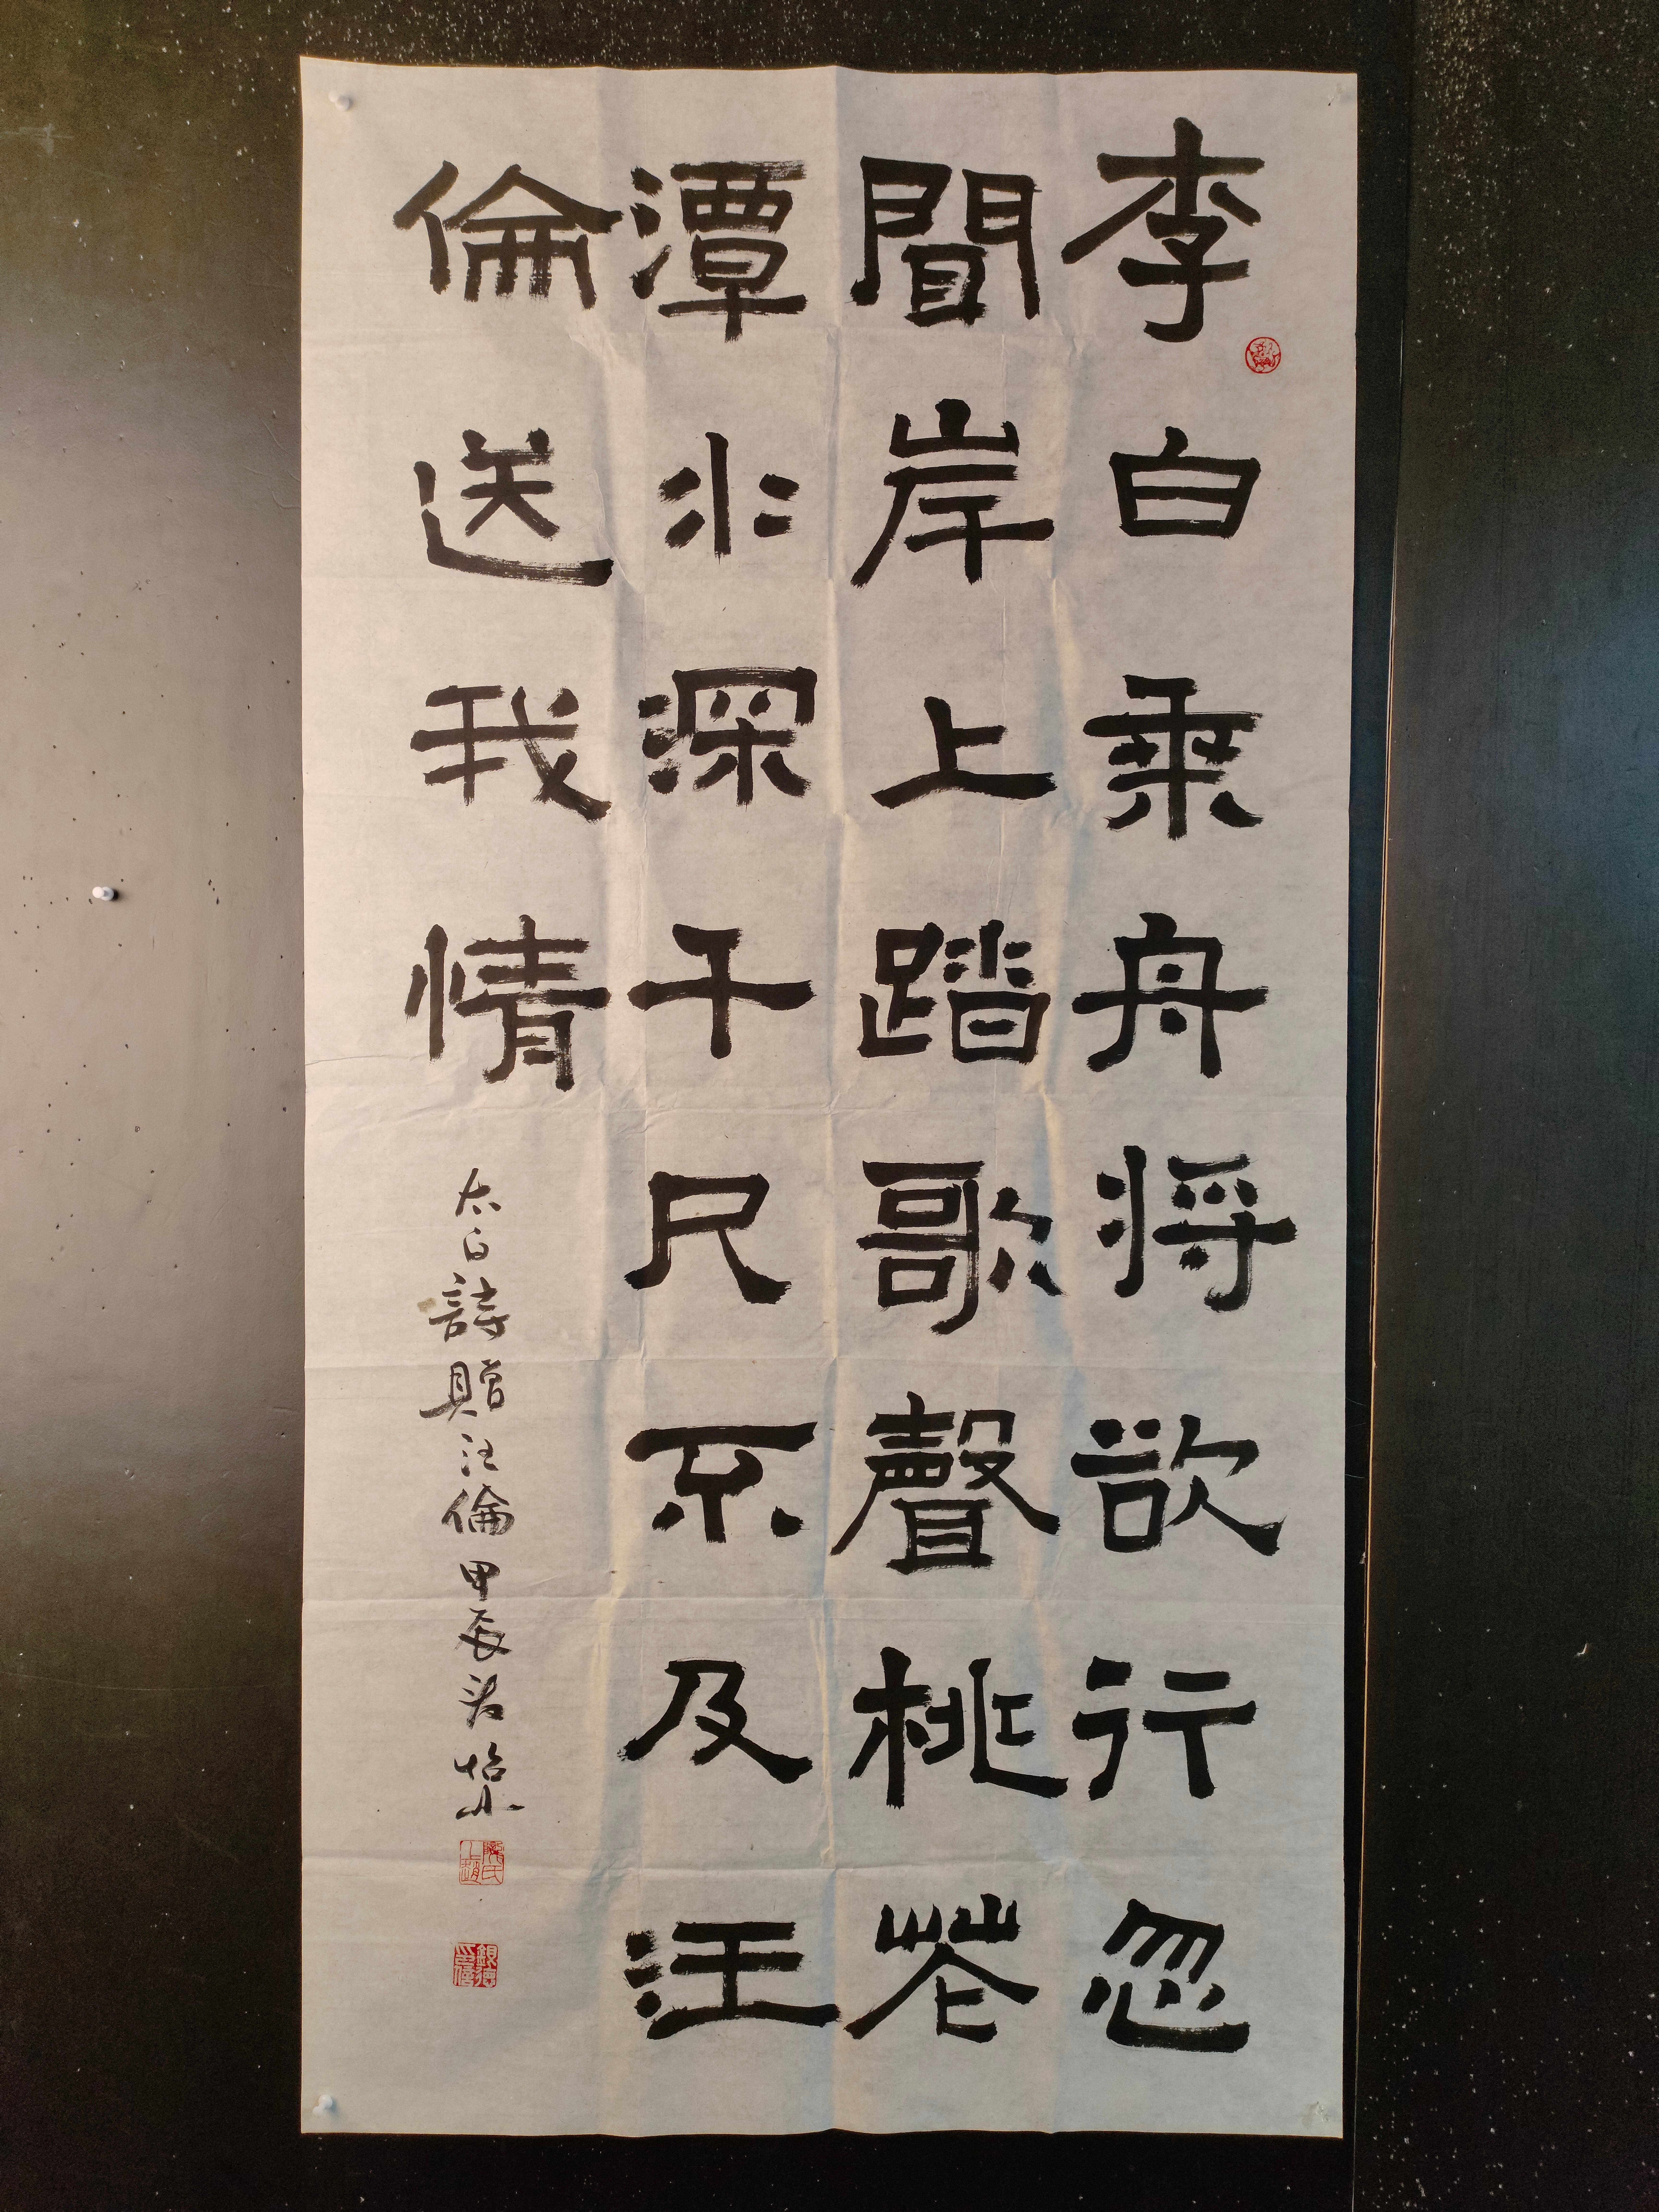 李白乘舟將欲行忽
聞岸上踏歌聲桃花
潭水深千尺不及汪
倫送我情
太白詩贈汪倫甲辰